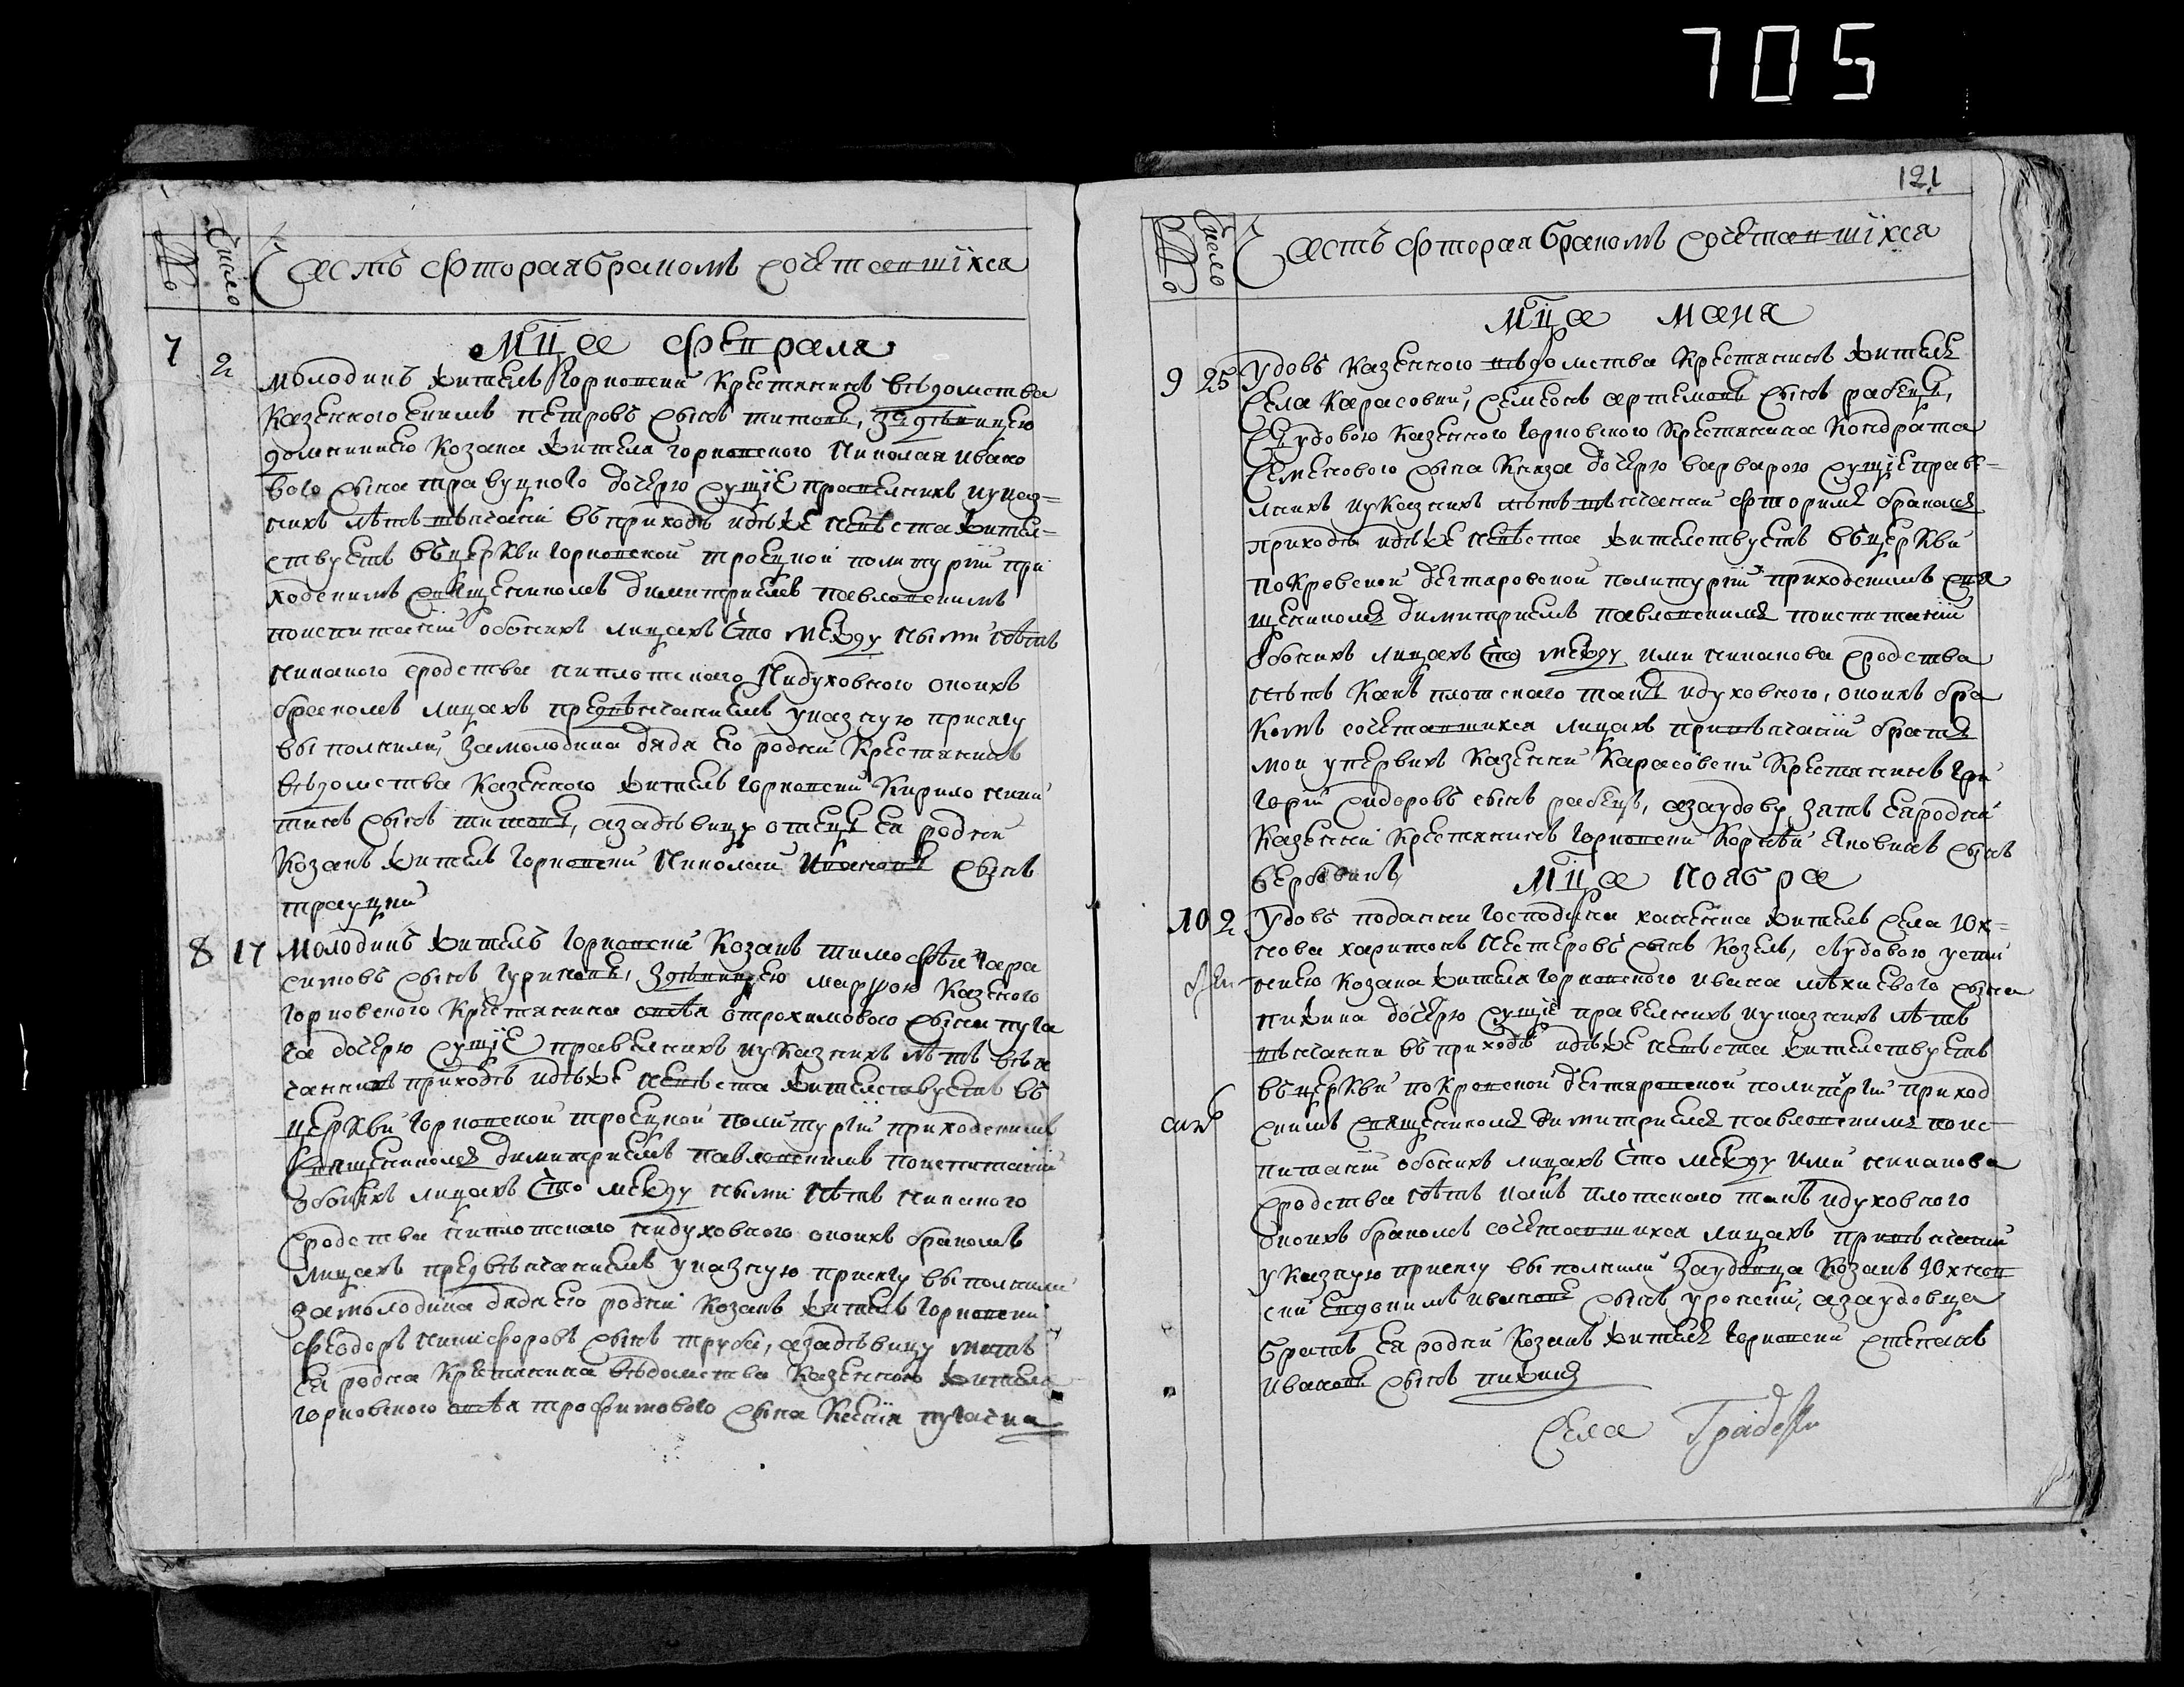 705
№ Число Часть фторая бракомъ сочетавшїхся
Мца Феврала
7 2 молодикъ житель Горковский Крестянинъ вѣдомства
Казенного Ефимъ Петровъ сынъ титовъ, з дѣвицею
домникиею Козака жителя горковского Николая Ивано
вого сына травуцкого дочерю сущїе правелнихъ иуказ=
нихъ лѣтъ вѣнчани въ приходѣ идѣже невѣста жител=
ствуетъ въ церкви горковской троецкой политургїи при
ходскимъ священикомъ димитриемъ павловскимъ
поиспитанїи обоихъ лицахъ что между ными нѣтъ
никакого сродства ниплотскаго нидуховного окоихъ
бракомъ лицахъ предвѣнчаниемъ указную присягу
выполнили, Замолодика дядя его родний Крестянинъ
вѣдомства Казенного житель горковский Кирило ники
тинъ сынъ титовъ, азадѣвицу отецъ ея родний
Козакъ житель горковский Николай Ивановъ сынъ
трауцкий
8 17 Молодикъ житель горковский Козакъ тимофѣй гара
симовъ сынъ гуриновъ, здѣвицею марфою Казенного
горковского Крестянина отрохимового сына пуга
ча дочерю сущїе правелнихъ иуказнихъ лѣтъ вѣн
чанни приходѣ идѣже невѣста жителствуетъ въ
церкви горковской троецкой политургїи приходскимъ
священикомъ димитриемъ павловскимъ поиспитанїи
обоихъ лицахъ что между ными нѣтъ никакого
сродства ниплотскаго нидуховного окоихъ бракомъ
лицахъ предвѣнчаниемъ указную присягу выполнили
замолодика дядя его родний Козакъ житель горковский
федоръ никифоровъ сынъ труба, азадѣвицу мать
ея родна Крестянина вѣдомства Казенного жителя
горковского трофимового сына Ксенїя пугачка
121
№ Число Часть фторая бракомъ сочетавшїхся
Мца Маия
9 25 Удовъ Казенного вѣдомства Крестянинъ житель
села Карасовки, семионъ артемовъ сынъ рабецъ,
съ удовою Казенного горковского Крестянина Кондрата
семенового сына Князя дочерю варварою сущїе праве=
лнихъ иуказнихъ лѣтъ вѣнчани фторимъ бракомъ
приходѣ идѣже невѣста жителствуетъ въ церкви
покровской дегтаровской политургїи приходскимъ свя
щеникомъ димитриемъ павловскимъ поиспитанїи
обоихъ лицахъ что между ими никакова сродства
нѣтъ какъ плотскаго такъ идуховного, окоихъ бра
комъ сочетавшихся лицахъ привѣнчанїи братъ
мои упервихъ Казенний Карасовский Крестянинъ гри
горїй сидоровъ сынъ рабецъ, азаудову зять ея родний
Казенний Крестянинъ горковский Корнѣй Яковиевъ сынъ
вербовикъ, Мца Ноябра
10 2 Удовъ подании господина житель села Юх=
нова харитонъ нестеровъ сынъ Козелъ, съудовою усти
ниею Козака жителя горковского ивана михиевого сына
пижика дочерю сущїе правелнихъ иуказнихъ лѣтъ
вѣнчани въ приходѣ идѣже невѣста жителствуетъ
въ церкви покровской дегтаровской политургїи приход
скимъ священикомъ димитриемъ павловскимъ поис
питанїи обоихъ лицахъ что между ими никакова
сродства нѣтъ какъ плотскаго такъ идуховного
окоихъ бракомъ сочетавшихся лицахъ привѣнчанїи
указную присягу выполнили Заудовца Козакъ Юхнов
ский Евдокимъ ивановъ сынъ азаудовца
братъ ея родний Козакъ житель горковский степанъ
ивановъ сынъ пижикъ
Села